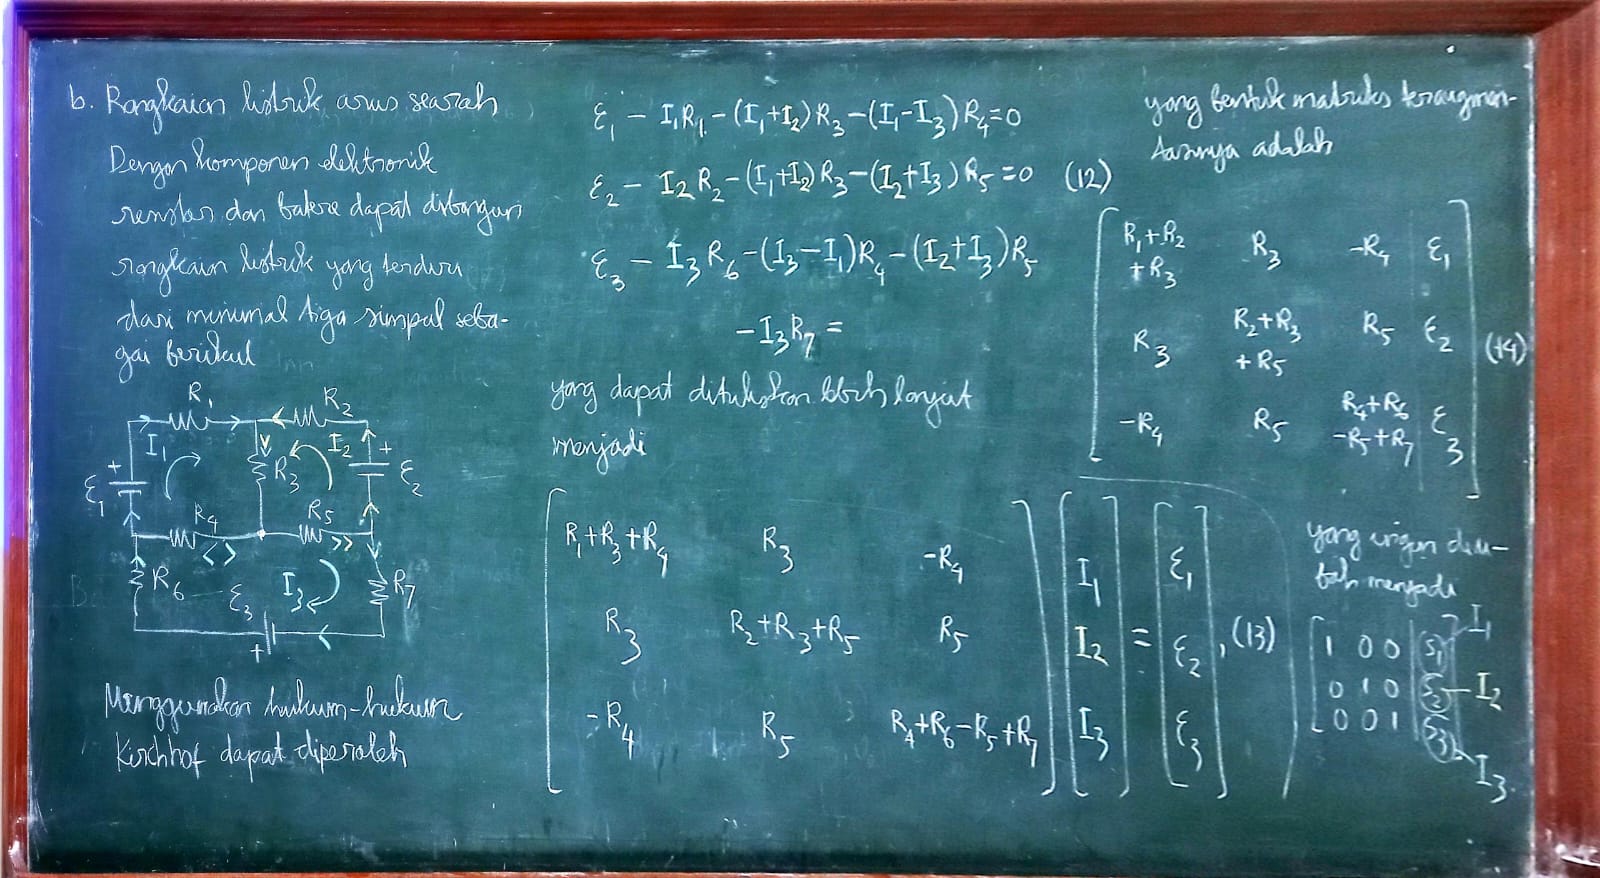 b. Rangkaian listrik arus searah
Dengan komponen elektronik
resistor dan batere dapat dibangun
rangkaian listrik yang terdiri
dari minimal tiga simpul seba-
gai berikut
R₁ R₂
I₁ I₂
+ R₃ +
ε₁ ε₂
R₄ R₅
R₆ ε₃ I₃ R₇
+
Menggunakan hukum-hukum
Kirchhof dapat diperoleh
ε₁ − I₁R₁ − (I₁+I₂)R₃ − (I₁−I₃)R₄ = 0
ε₂ − I₂R₂ − (I₁+I₂)R₃ − (I₂+I₃)R₅ = 0 (12)
ε₃ − I₃R₆ − (I₃−I₁)R₄ − (I₂+I₃)R₅
− I₃R₇ =
yang dapat dituliskan lebih lanjut
menjadi
R₁+R₃+R₄ R₃ −R₄ I₁ ε₁
R₃ R₂+R₃+R₅ R₅ I₂ = ε₂ , (13)
−R₄ R₅ R₄+R₆−R₅+R₇ I₃ ε₃
yang bentuk matriks teraugmen-
tasinya adalah
R₁+R₂
+R₃ R₃ −R₄ ε₁
R₃ R₂+R₃
+R₅ R₅ ε₂ (14)
−R₄ R₅ R₄+R₆
−R₅+R₇ ε₃
yang ingin diu-
bah menjadi
1 0 0 S₁ I₁
0 1 0 S₂ I₂
0 0 1 S₃ I₃